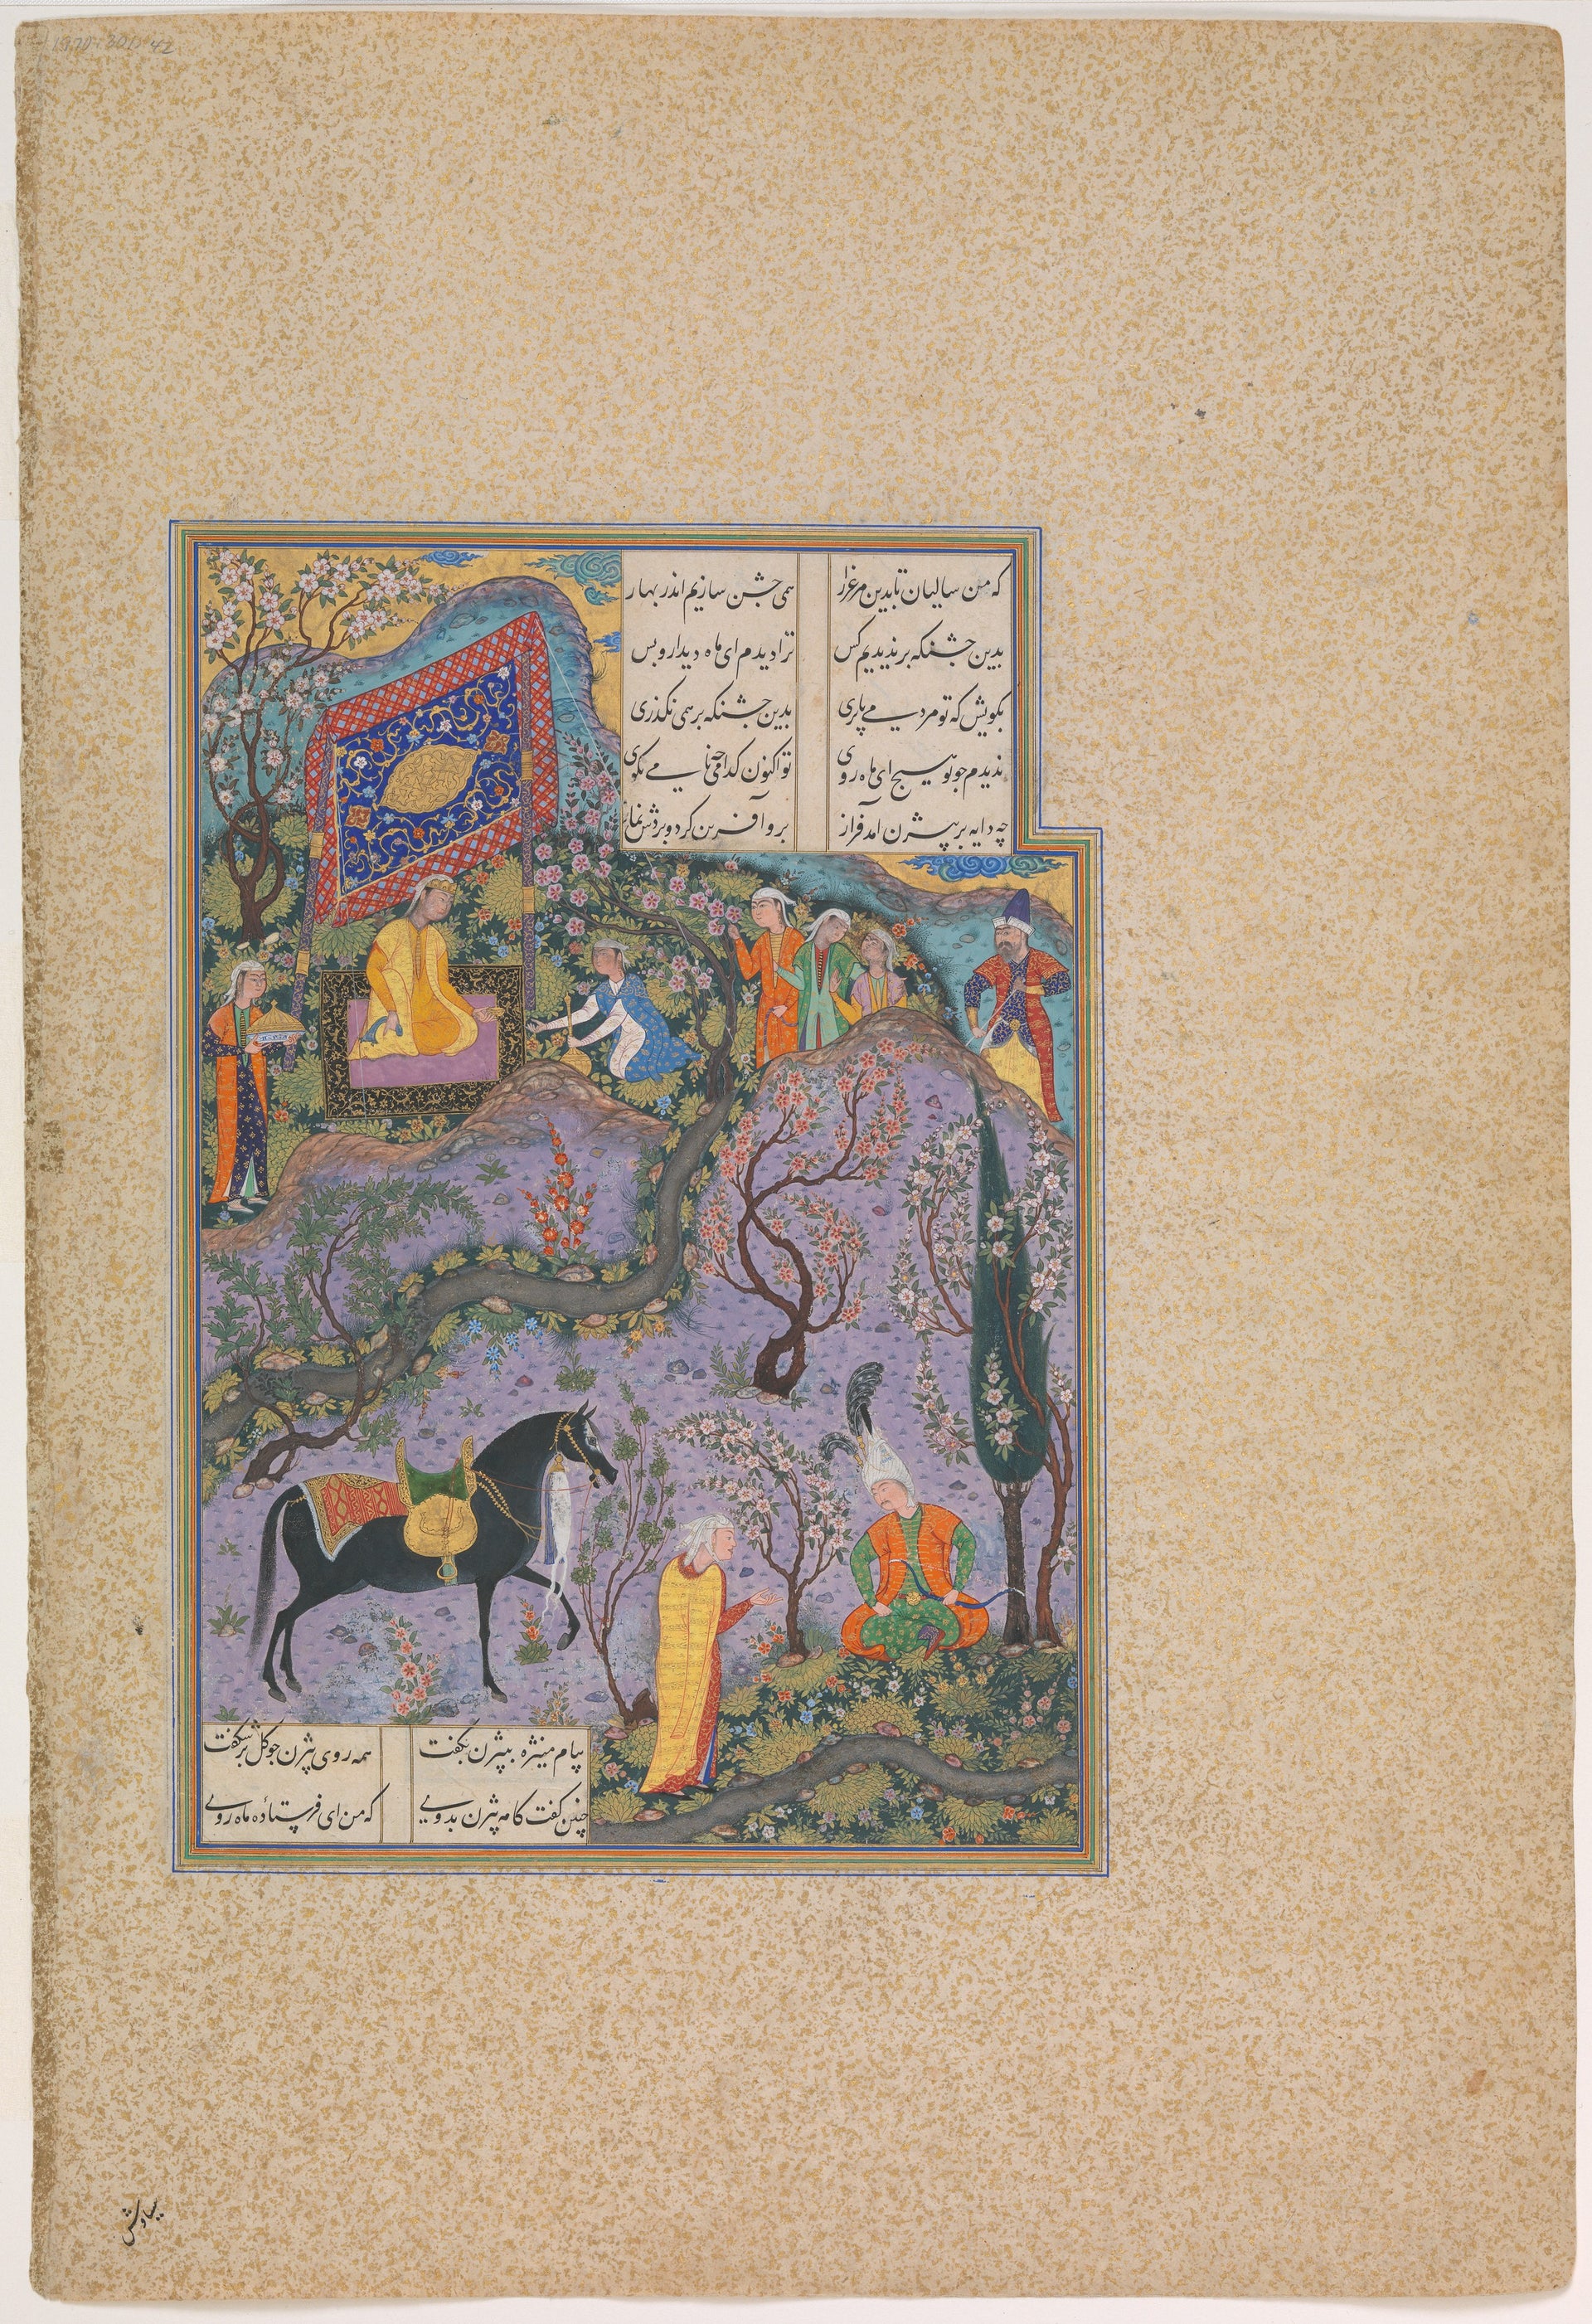 1970.301.42
که من سالیان تا بدین مرغزار همی جشن سازیم اندر بهار
بدین جشنکه بر ندیدیم کس ترا دیدم ای ماه دیدار و بس
بکویش که تو مردمی یا پری بدین جشنکه بر همی نکذری
ندیدم جو تو هیچ ای ماه روی تو اکنون کدامی جه نامی بکوی
چه دایه بر بیژن آمد فراز برو آفرین کرد و بردش نماز
پیام منیژه ببیژن بکفت همه روی بیژن جو کل برشکفت
چنین کفت کامه بیژن بدوی که من ای فرستاده ماه روی
سیاوش